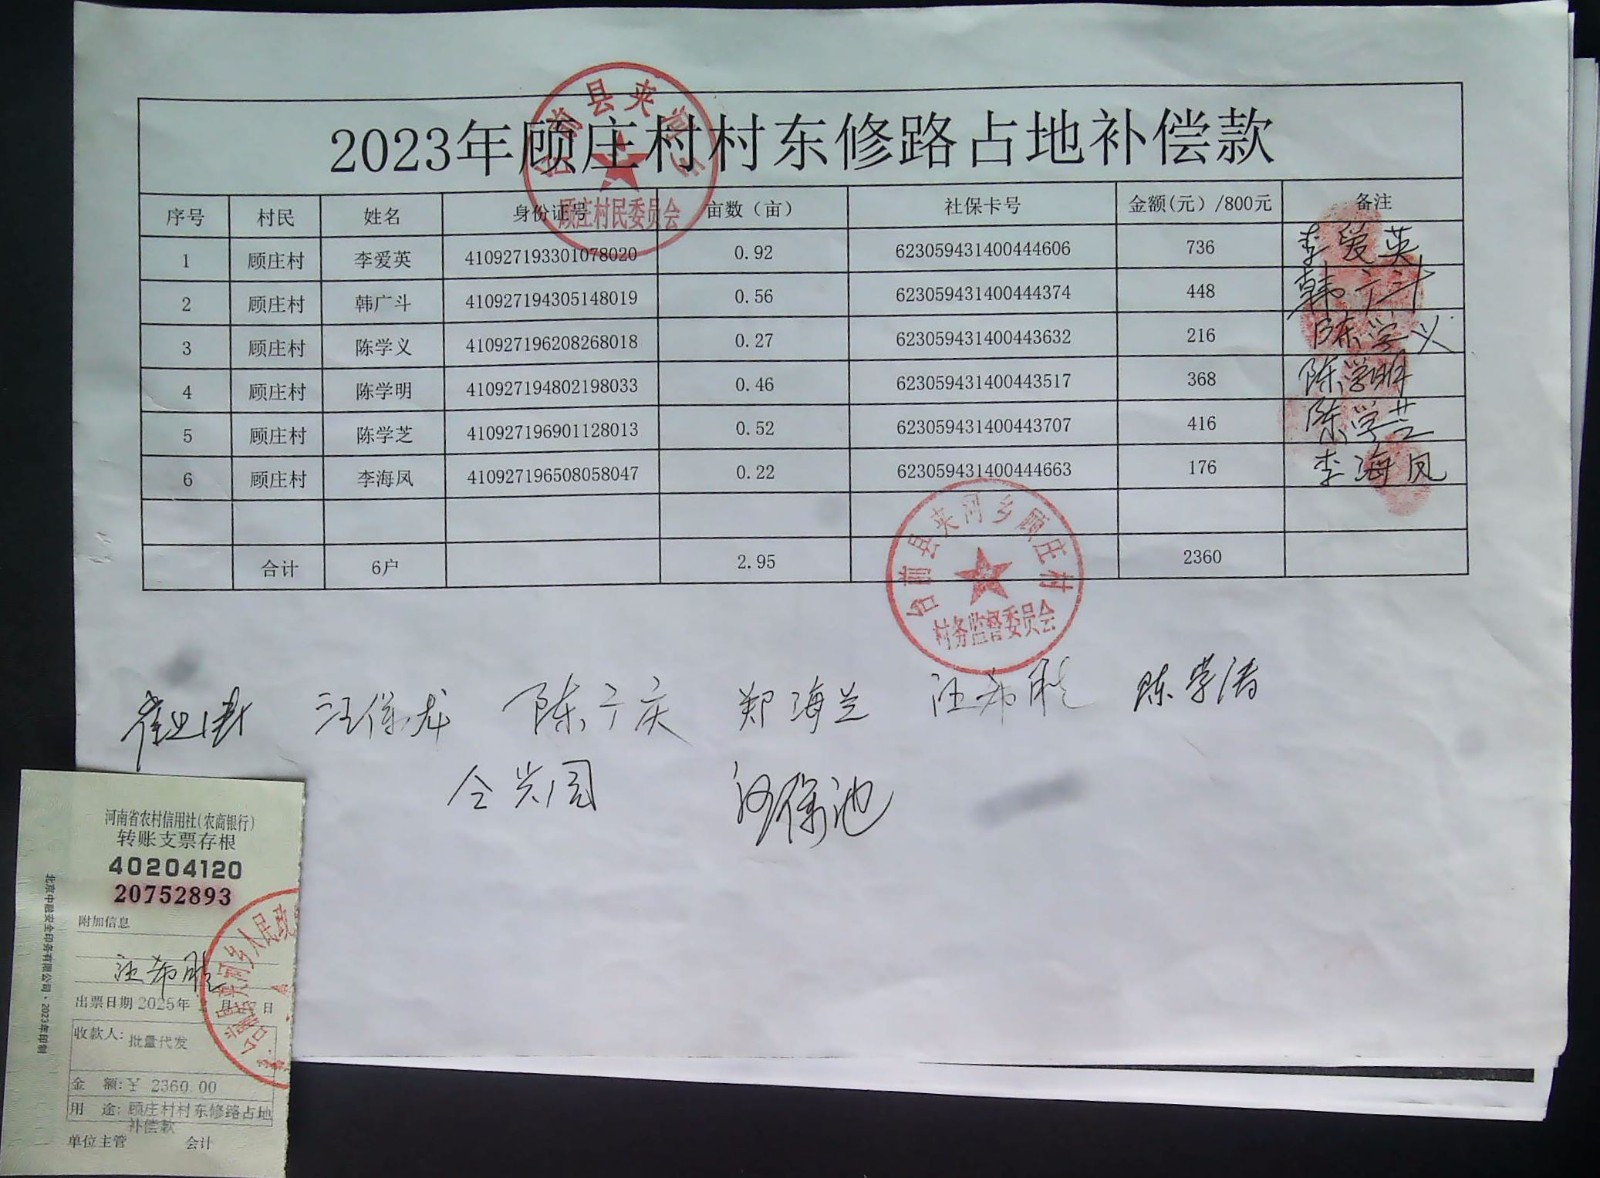 2023年顾庄村村东修路占地补偿款
序号 村民 姓名 身份证号 亩数（亩） 社保卡号 金额(元）/800元 备注
1 顾庄村 李爱英 410927193301078020 0.92 623059431400444606 736 李爱英
2 顾庄村 韩广斗 410927194305148019 0.56 623059431400444374 448 韩广斗
3 顾庄村 陈学义 410927196208268018 0.27 623059431400443632 216 陈学义
4 顾庄村 陈学明 410927194802198033 0.46 623059431400443517 368 陈学明
5 顾庄村 陈学芝 410927196901128013 0.52 623059431400443707 416 陈学芝
6 顾庄村 李海凤 410927196508058047 0.22 623059431400444663 176 李海凤
合计 6户 2.95 2360
顾庄村民委员会
台前县夹河乡顾庄村
村务监督委员会
汪保龙 陈广庆 郑海兰 汪希胜 陈学清
仝兴园
河南省农村信用社(农商银行)
转账支票存根
40204120
20752893
附加信息
汪希胜
出票日期 2025年 月 日
收款人: 批量代发
金 额:￥ 2360.00
用 途: 顾庄村村东修路占地
补偿款
单位主管 会计
北京中融安全印务有限公司·2023年印制